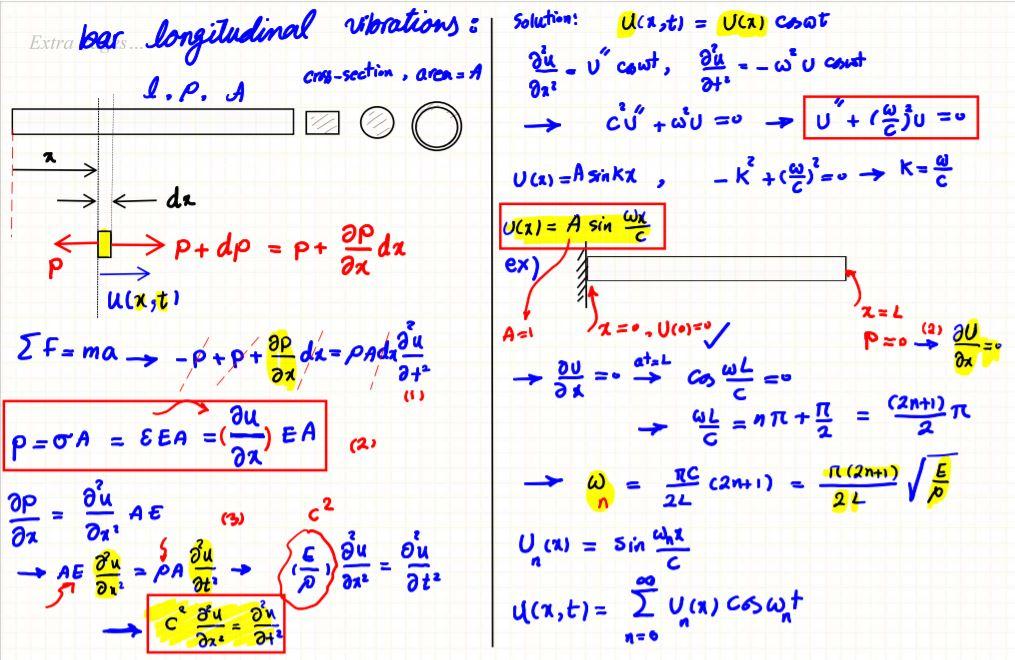 Extra
bar longitudinal vibrations:
cross-section, area = A
l. ρ. A
x
dx
P
P + dp = P + ∂P/∂x dx
u(x,t)
ΣF = ma → -P + P + ∂P/∂x dx = ρAdx ∂²u/∂t²
(1)
P = σA = εEA = (∂u/∂x) EA (2)
∂P/∂x = ∂²u/∂x² AE
(3) c²
→ AE ∂²u/∂x² = ρA ∂²u/∂t² → (E/ρ) ∂²u/∂x² = ∂²u/∂t²
→ c² ∂²u/∂x² = ∂²u/∂t²
Solution: u(x,t) = U(x) cosωt
∂²u/∂x² = U'' cosωt, ∂²u/∂t² = -ω² U cosωt
→ c²U'' + ω²U = 0 → U'' + (ω/c)²U = 0
U(x) = A sin Kx, -K² + (ω/c)² = 0 → K = ω/c
U(x) = A sin ωx/c
ex)
x = L
A=1 x=0, U(0)=0 ✓ P=0 (2)→ ∂U/∂x = 0
→ ∂U/∂x = 0 at=L→ cos ωL/c = 0
→ ωL/c = nπ + π/2 = (2n+1)/2 π
→ ωn = πC/2L (2n+1) = π(2n+1)/2L √E/ρ
Un(x) = sin ωnx/c
u(x,t) = Σ∞n=0 Un(x) cos ωnt